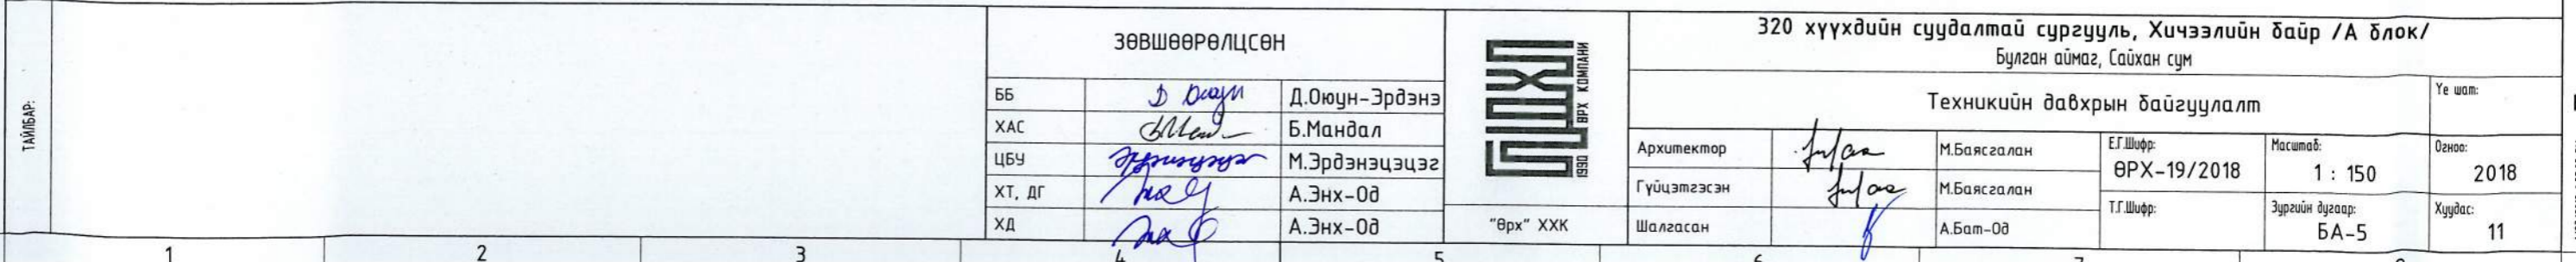 ТАЙЛБАР:
ЗӨВШӨӨРӨЛЦСӨН
ББ Д.Оюун-Эрдэнэ
ХАС Б.Мандал
ЦБУ М.Эрдэнэцэцэг
ХТ, ДГ А.Энх-Од
ХД А.Энх-Од
1990 ӨРХ КОМПАНИ
"Өрх" ХХК
320 хүүхдийн суудалтай сургууль, Хичээлийн байр /А блок/
Булган аймаг, Сайхан сум
Техникийн давхрын байгуулалт
Үе шат:
Архитектор М.Баясгалан
Гүйцэтгэсэн М.Баясгалан
Шалгасан А.Бат-Од
Е.Г.Шифр:
ӨРХ-19/2018
Масштаб:
1 : 150
Огноо:
2018
Т.Г.Шифр:
Зургийн дугаар:
БА-5
Хуудас:
11
1 2 3 4 5 6 7